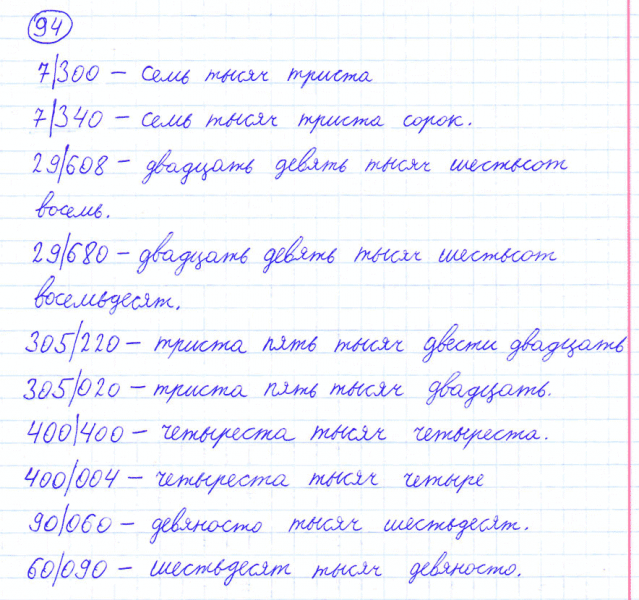 94
7|300 – семь тысяч триста
7|340 – семь тысяч триста сорок.
29|608 – двадцать девять тысяч шестьсот
восемь.
29|680 – двадцать девять тысяч шестьсот
восемьдесят.
305|220 – триста пять тысяч двести двадцать
305|020 – триста пять тысяч двадцать.
400|400 – четыреста тысяч четыреста.
400|004 – четыреста тысяч четыре
90|060 – девяносто тысяч шестьдесят.
60|090 – шестьдесят тысяч девяносто.